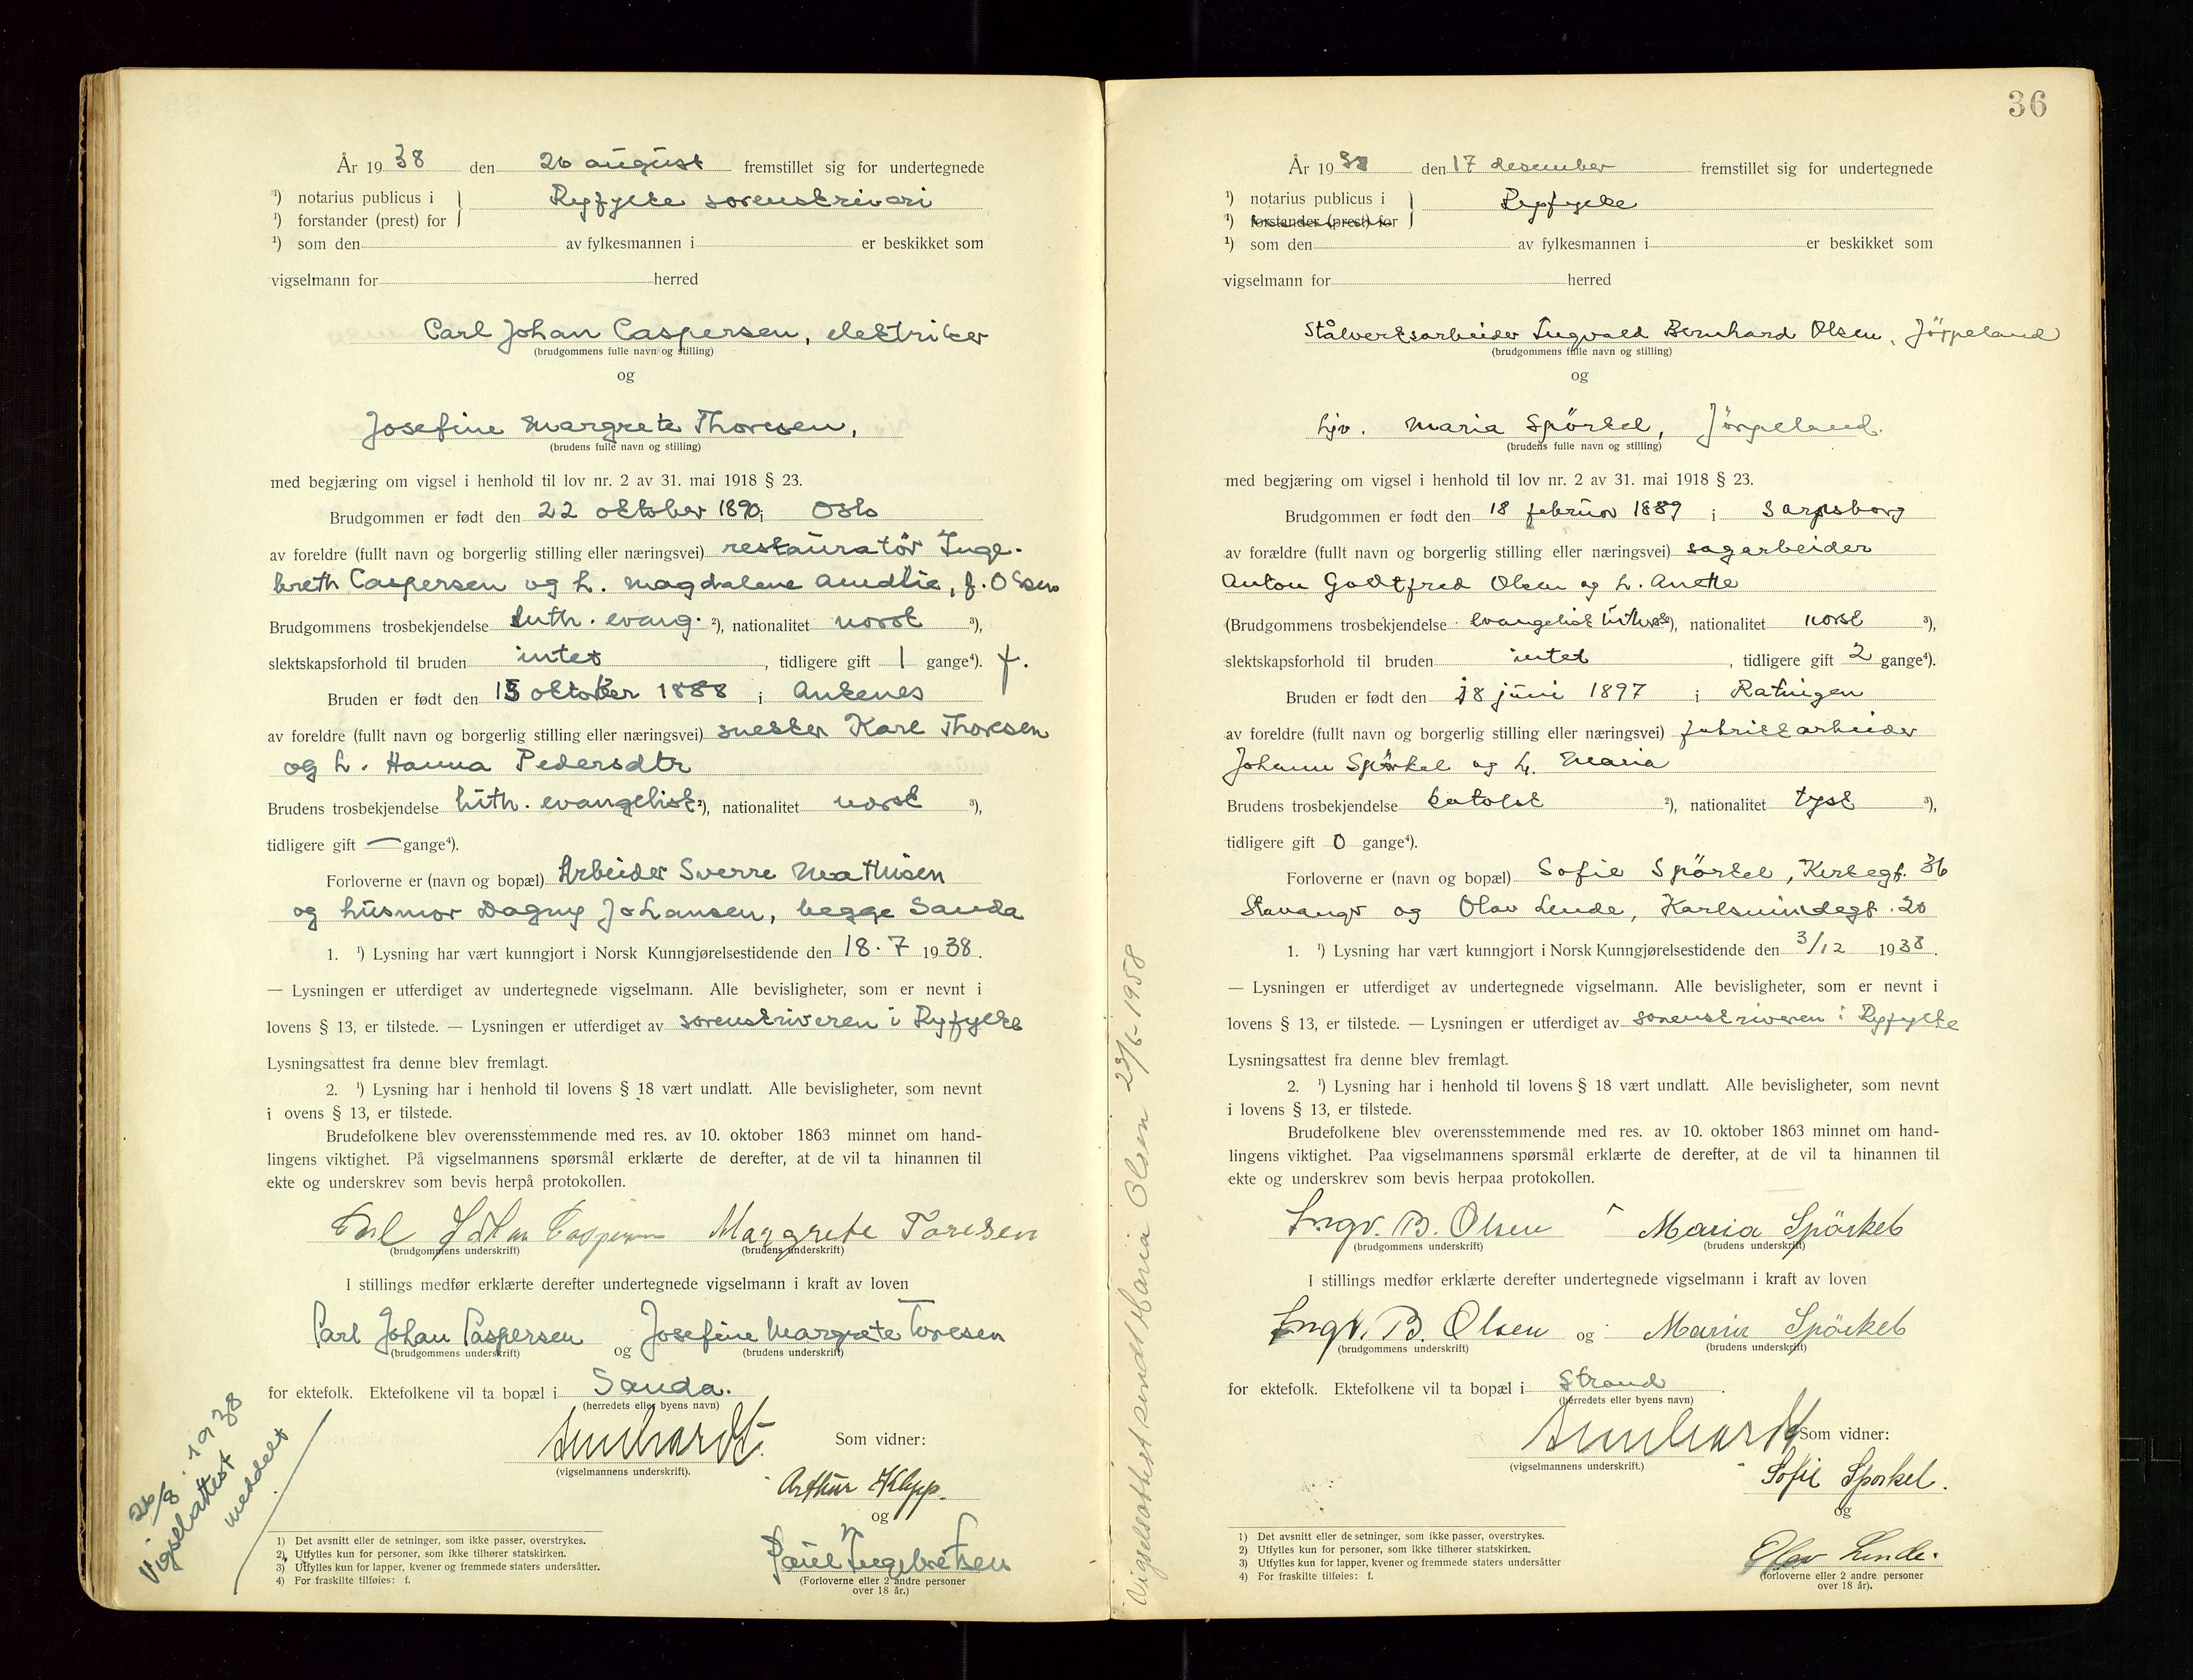 År 1938 den 26 august fremstillet sig for undertegnede
¹) notarius publicus i } Ryfylke sorenskriveri
¹) forstander (prest) for
¹) som den av fylkesmannen i er beskikket som
vigselmann for herred
Carl Johan Caspersen, elektriker
(brudgommens fulle navn og stilling)
og
Josefine Margrete Thoresen,
(brudens fulle navn og stilling)
med begjæring om vigsel i henhold til lov nr. 2 av 31. mai 1918 § 23.
Brudgommen er født den 22 oktober 1890 i Oslo
av foreldre (fullt navn og borgerlig stilling eller næringsvei) restauratør Inge-
breth Caspersen og h. Magdalene Amdlia, f. Olsen
Brudgommens trosbekjendelse luth. evang. ²), nationalitet norsk ³),
slektskapsforhold til bruden intet, tidligere gift 1 gange⁴). f.
Bruden er født den 15 oktober 1888 i Ankenes
av foreldre (fullt navn og borgerlig stilling eller næringsvei) snekker Karl Thoresen
og h. Hanna Pedersdtr
Brudens trosbekjendelse luth. evangelisk ²), nationalitet norsk ³),
tidligere gift — gange⁴).
Forloverne er (navn og bopæl) Arbeider Sverre Mathisen
og husmor Dagny Johansen, begge Sauda
1. ¹) Lysning har vært kunngjort i Norsk Kunngjørelsestidende den 18.7 1938.
— Lysningen er utferdiget av undertegnede vigselmann. Alle bevisligheter, som er nevnt i
lovens § 13, er tilstede. — Lysningen er utferdiget av sorenskriveren i Ryfylke
Lysningsattest fra denne blev fremlagt.
2. ¹) Lysning har i henhold til lovens § 18 vært undlatt. Alle bevisligheter, som nevnt
i ovens § 13, er tilstede.
Brudefolkene blev overensstemmende med res. av 10. oktober 1863 minnet om hand-
lingens viktighet. På vigselmannens spørsmål erklærte de derefter, at de vil ta hinannen til
ekte og underskrev som bevis herpå protokollen.
Carl Johan Caspersen Margrete Toresen
(brudgommens underskrift) (brudens underskrift)
I stillings medfør erklærte derefter undertegnede vigselmann i kraft av loven
Carl Johan Caspersen og Josefine Margrete Toresen
(brudgommens underskrift) (brudens underskrift)
for ektefolk. Ektefolkene vil ta bopæl i Sauda.
(herredets eller byens navn)
(vigselmannens underskrift).
Som vidner:
Arthur Klepp.
og
Paul Ingebretsen
(Forloverne eller 2 andre personer
over 18 år.)
26/8. 1938
Vigselattest
meddelt
1) Det avsnitt eller de setninger, som ikke passer, overstrykes.
2) Utfylles kun for personer, som ikke tilhører statskirken.
3) Utfylles kun for lapper, kvener og fremmede staters undersåtter.
4) For fraskilte tilføies: f.
36
År 1938 den 17 desember fremstillet sig for undertegnede
¹) notarius publicus i } Ryfylke
¹) forstander (prest) for
¹) som den av fylkesmannen i er beskikket som
vigselmann for herred
Stålverksarbeider Ingvald Bernhard Olsen, Jörpeland
(brudgommens fulle navn og stilling)
og
hjv. Maria Spörkel, Jörpeland.
(brudens fulle navn og stilling)
med begjæring om vigsel i henhold til lov nr. 2 av 31. mai 1918 § 23.
Brudgommen er født den 18 februar 1889 i Sarpsborg
av forældre (fullt navn og borgerlig stilling eller næringsvei) sagarbeider
Anton Godtfred Olsen og h. Anette
(Brudgommens trosbekjendelse evangelisk luthersk ²), nationalitet norsk ³),
slektskapsforhold til bruden intet, tidligere gift 2 gange⁴).
Bruden er født den 18 juni 1897 i Ratingen
av foreldre (fullt navn og borgerlig stilling eller næringsvei) fabrikkarbeider
Johann Spörkel og h. Maria
Brudens trosbekjendelse katolsk ²), nationalitet tysk ³),
tidligere gift 0 gange⁴).
Forloverne er (navn og bopæl) Sofie Spörkel, Kirkegt. 36
Stavanger og Olav Lende, Karlsmindegt. 20
1. ¹) Lysning har vært kunngjort i Norsk Kunngjørelsestidende den 3/12 1938.
— Lysningen er utferdiget av undertegnede vigselmann. Alle bevisligheter, som er nevnt i
lovens § 13, er tilstede. — Lysningen er utferdiget av sorenskriveren i Ryfylke
Lysningsattest fra denne blev fremlagt.
2. ¹) Lysning har i henhold til lovens § 18 vært undlatt. Alle bevisligheter, som nevnt
i lovens § 13, er tilstede.
Brudefolkene blev overensstemmende med res. av 10. oktober 1863 minnet om hand-
lingens viktighet. Paa vigselmannens spørsmål erklærte de derefter, at de vil ta hinannen til
ekte og underskrev som bevis herpaa protokollen.
Ingv. B. Olsen Maria Spörkel
(brudgommens underskrift) (brudens underskrift)
I stillings medfør erklærte derefter undertegnede vigselmann i kraft av loven
Ingv. B. Olsen og Maria Spörkel
(brudgommens underskrift) (brudens underskrift)
for ektefolk. Ektefolkene vil ta bopæl i Strand.
(herredets eller byens navn)
(vigselmannens underskrift.)
Som vidner:
Sofie Spörkel.
og
Olav Lende.
(forloverne eller 2 andre personer
over 18 år).
1) Det avsnitt eller de setninger, som ikke passer, overstrykes.
2) Utfylles kun for personer, som ikke tilhører statskirken.
3) Utfylles kun for lapper, kvener og fremmede staters undersåtter
4) For fraskilte tilføies: f.
Vigselsattest sendt Maria Olsen 23/6-1958